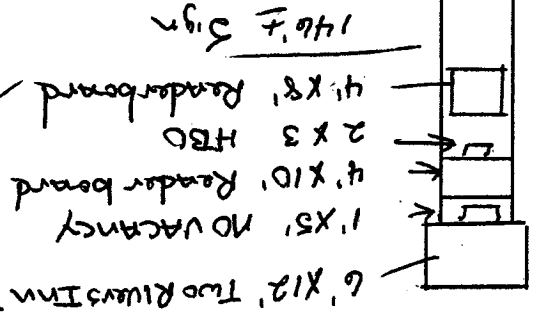 6' X12' Two Rivers Inn
1' X5' NO VACANCY
4' X10' Reader board
2 X 3 HBO
4' X8' Readerboard
146'± Sign